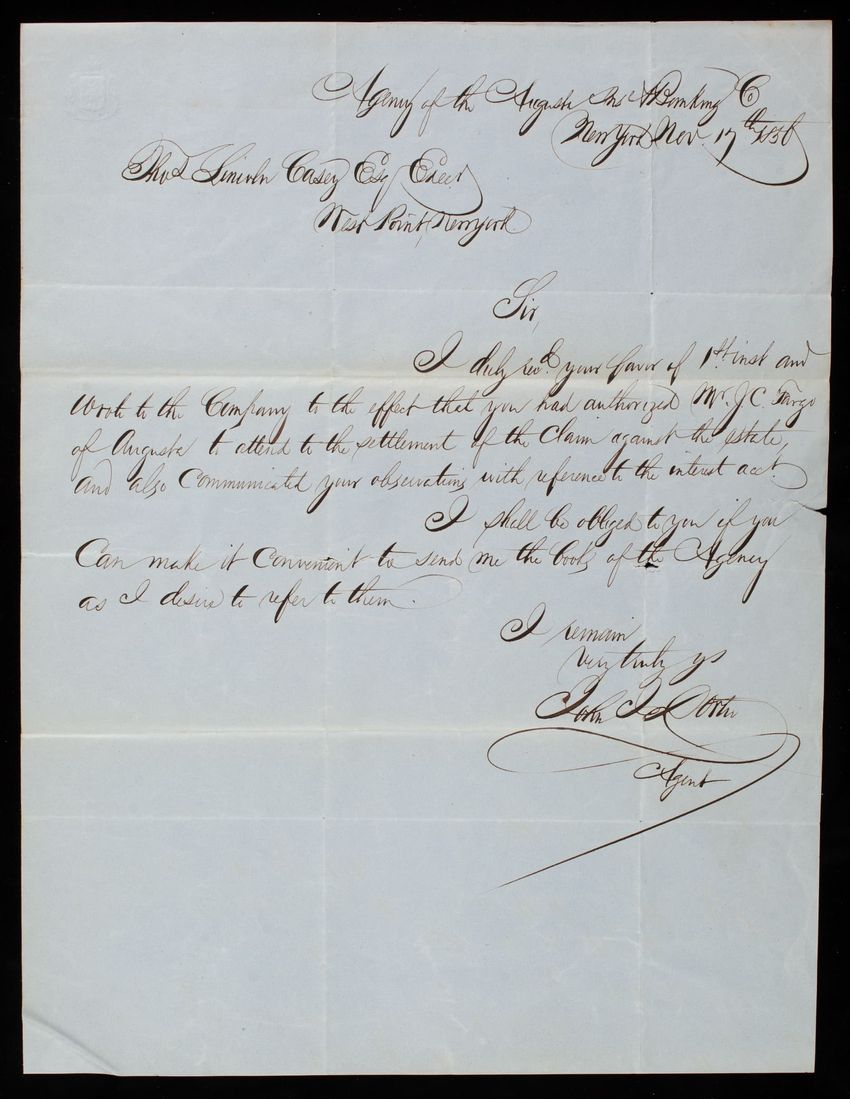 Agency of the Augusta Insce & Banking Co
New York Nov. 17th 1856
Thos Lincoln Casey Esq Execr
West Point, New York
Sir,
I duly recd. your favor of 1st. inst and
wrote to the Company to the effect that you had authorized Mr. J. C. Fargo
of Augusta to attend to the settlement of the Claim against the estate,
and also Communicated your observations with reference to the interest acct.
I shall be obliged to you if you
Can make it Convenient to send me the books of the Agency
as I desire to refer to them.
I remain
very truly ys
John J
Agent